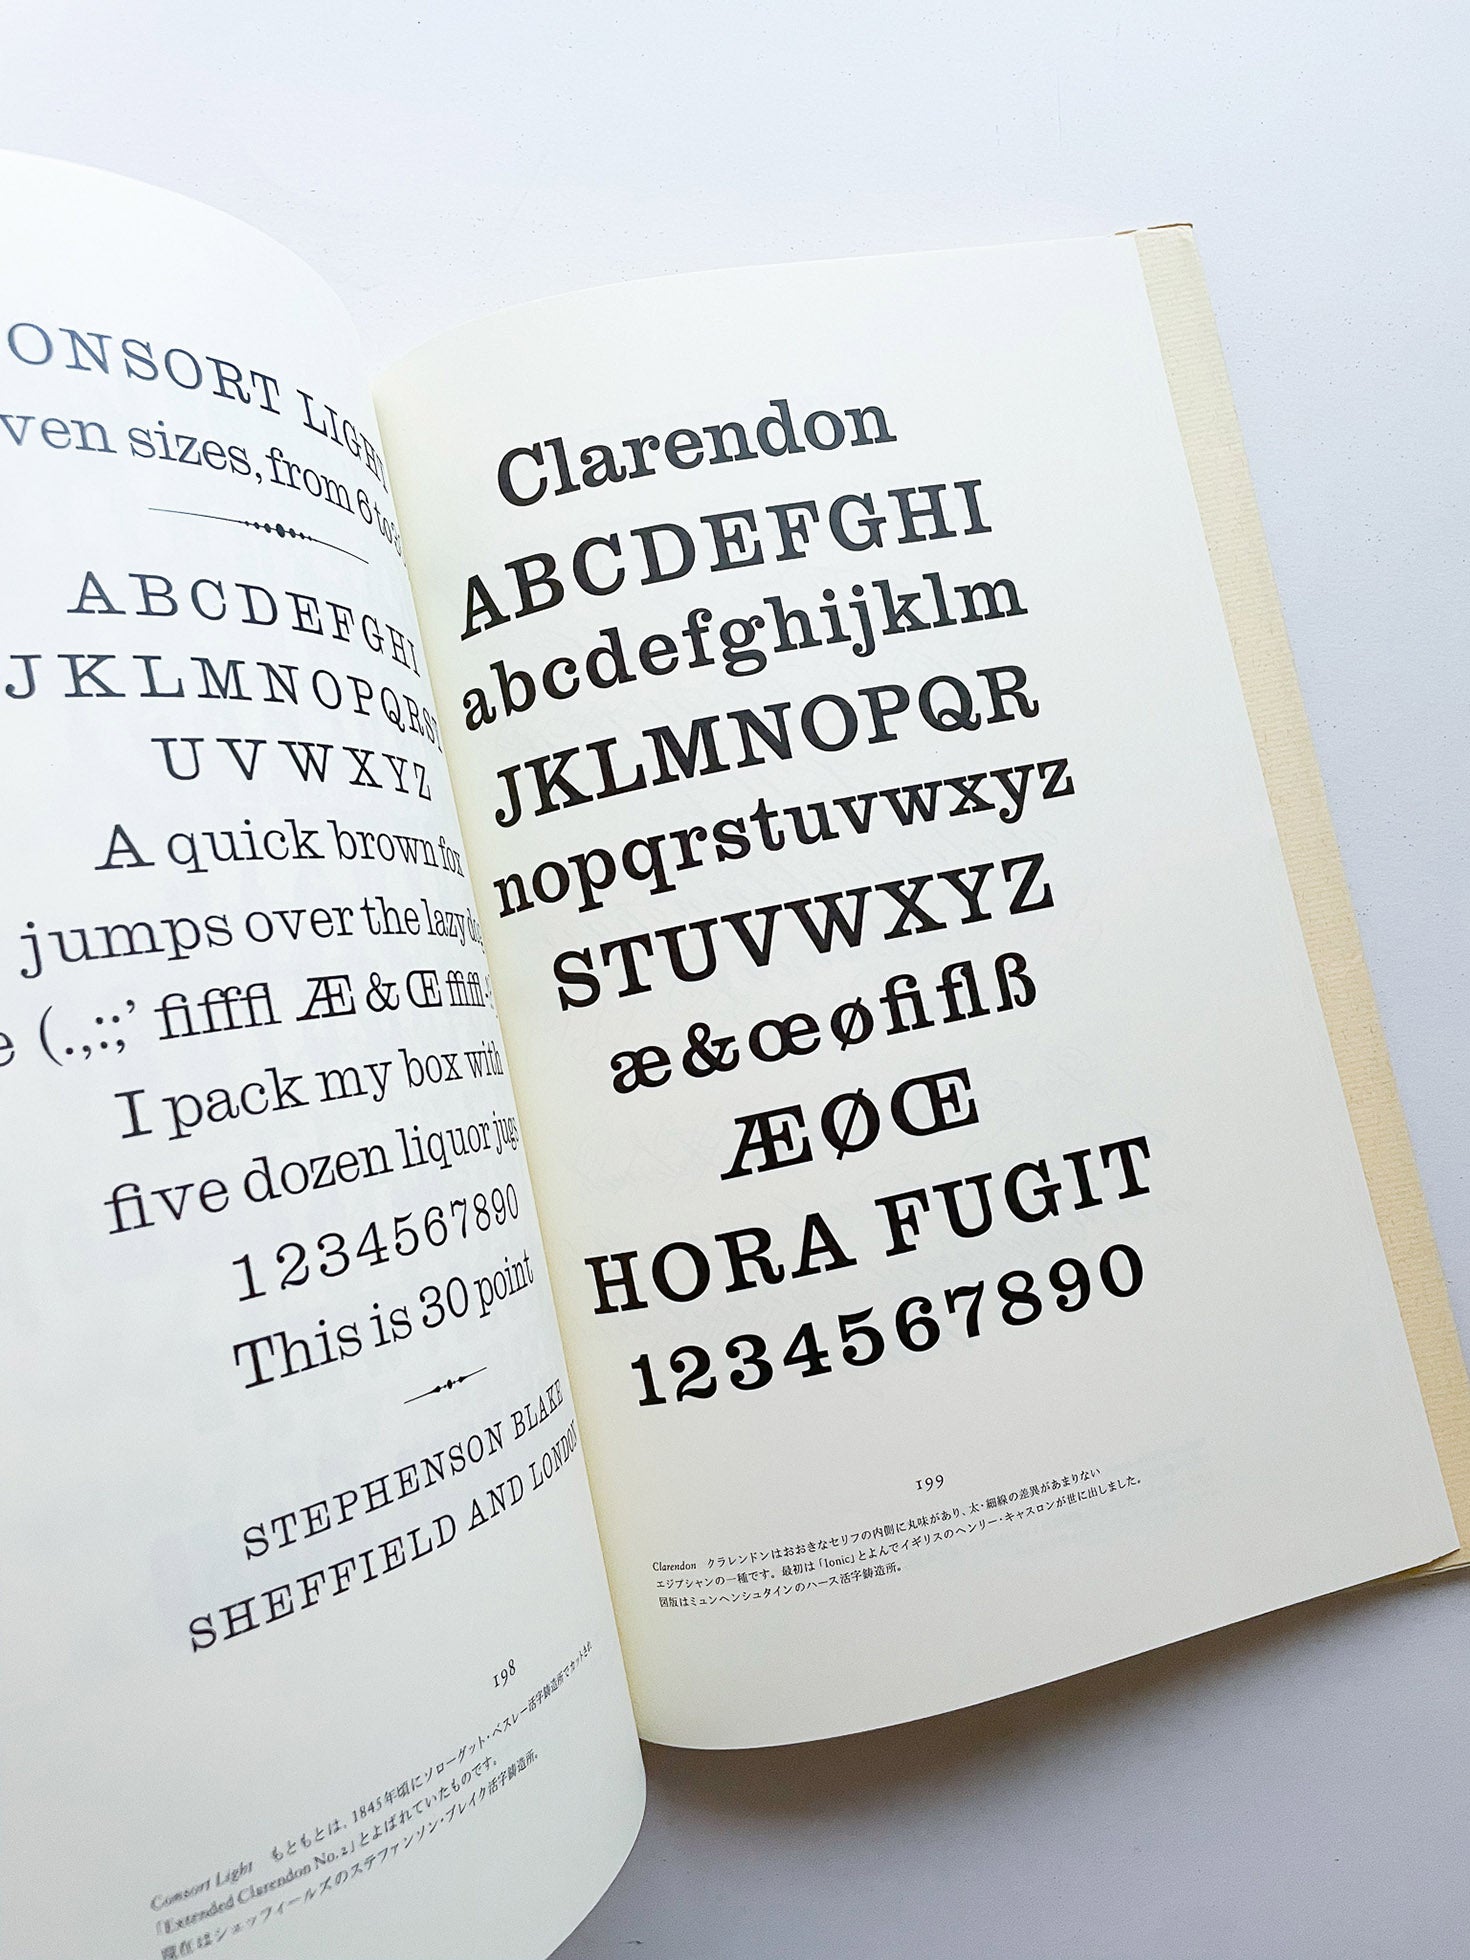 ONSORT LIGHT
ven sizes, from 6 to 3
A B C D E F G H I
J K L M N O P Q R S T
U V W X Y Z
A quick brown fox
jumps over the lazy do
e (.,:;’ fiffffl Æ & Œ ffiffl-
I pack my box with
five dozen liquor jugs
1234567890
This is 30 point
STEPHENSON BLAKE
SHEFFIELD AND LONDON
198
Consort Light もともとは、1845年頃にソローグット・ベスレー活字鋳造所でカットされ
「Extended Clarendon No.2」とよばれていたものです。
現在はシェッフィールズのステファンソン・ブレイク活字鋳造所。
Clarendon
ABCDEFGHI
abcdefghijklm
JKLMNOPQR
nopqrstuvwxyz
STUVWXYZ
æ&œøfiflß
ÆØŒ
HORA FUGIT
1234567890
199
Clarendon クラレンドンはおおきなセリフの内側に丸味があり、太・細線の差異があまりない
エジプシャンの一種です。最初は「Ionic」とよんでイギリスのヘンリー・キャスロンが世に出しました。
図版はミュンヘンシュタインのハース活字鋳造所。